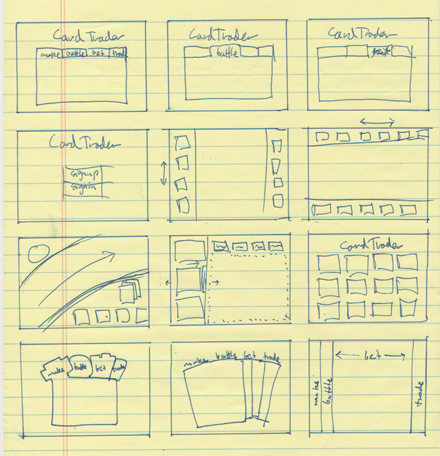 CardTrader
CardTrader
CardTrader
make battle bet trade
battle
CardTrader
signup
signin
CardTrader
make battle bet trade
make battle bet trade
bet
make
battle
trade